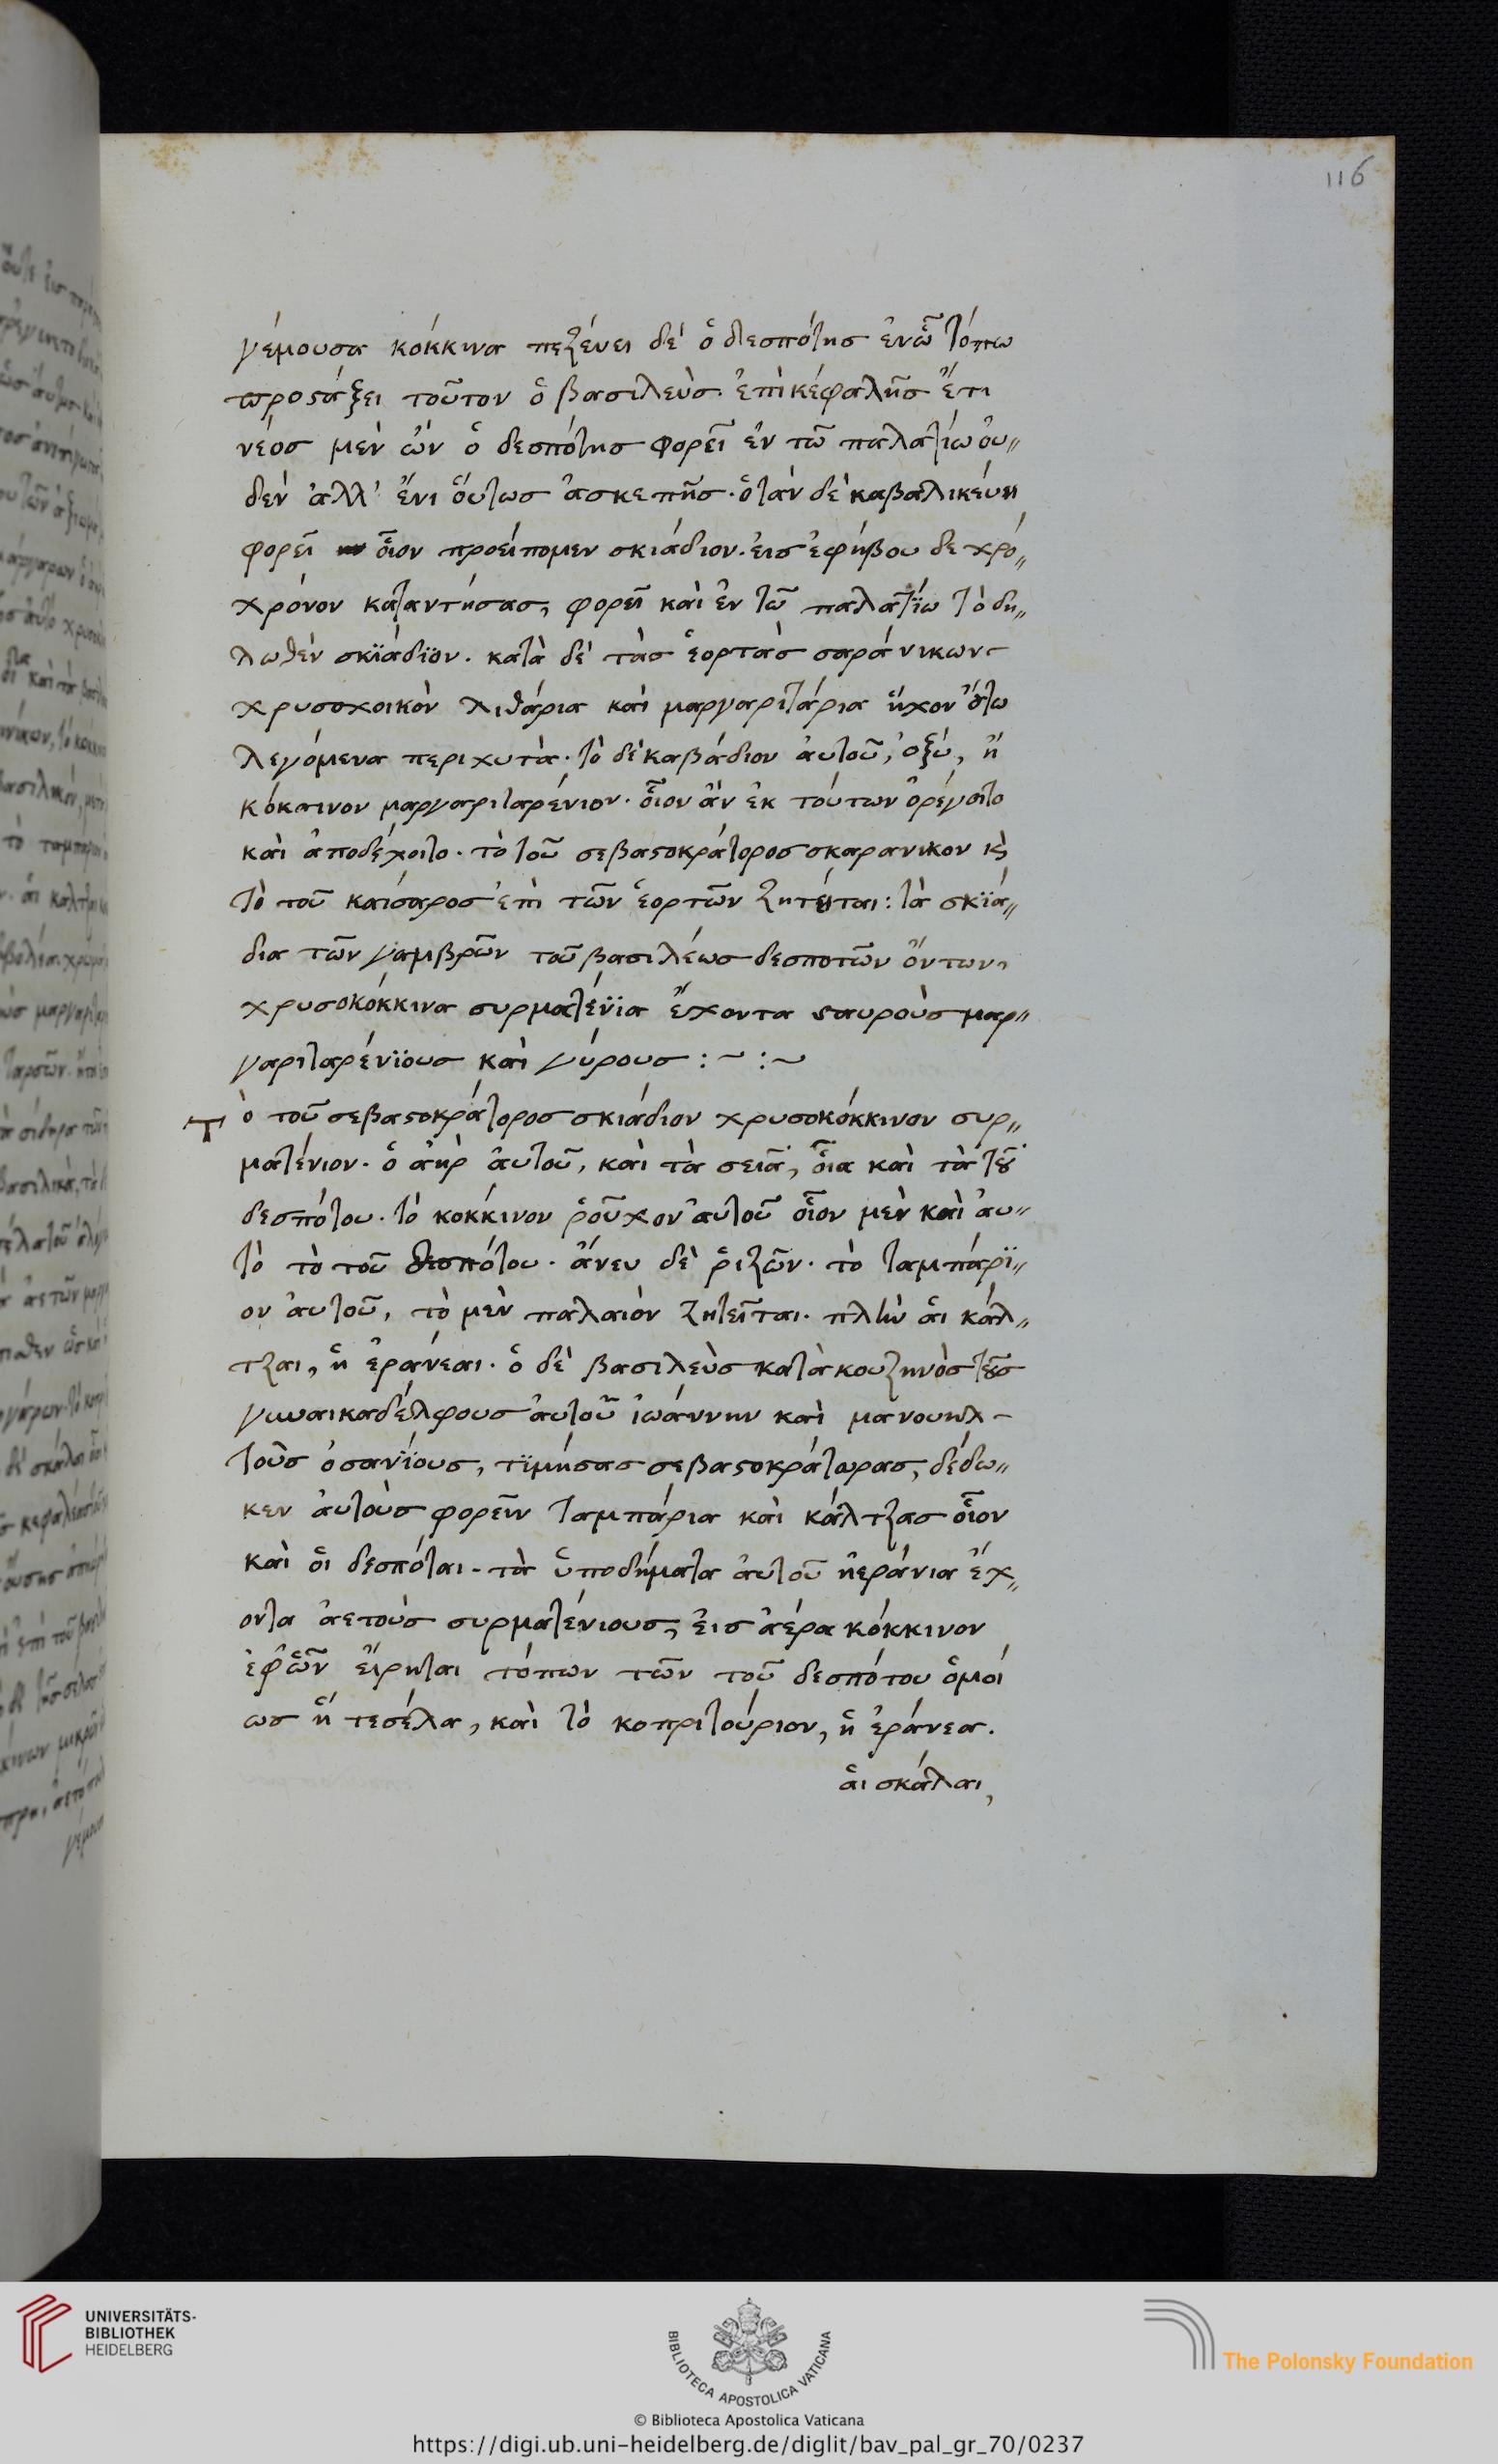 116
γέμουσα κόκκινα πεζεύει δὲ ὁ δεσπότησ ἐνὧ τόπω
προστάξει τοῦτον ὁ βασιλεὺσ. ἐπὶκέφαλῆσ ἔτι
νέοσ μὲν ὢν ὁ δεσπότησ φορεῖ ἐν τῶ παλατίω ὀυ〃
δὲν ἀλλ' ἔνι ὅυτωσ ἀσκεπὴσ. ὅταν δὲ καβαλικέυη
φορεῖ οἷον προείπομεν σκιάδιον. ἐισ ἐφήβου δε χρό〃
χρόνον καταντήσασ, φορεῖ καὶ ἐν τῶ παλατίω τὸ δη〃
λωθὲν σκϊάδϊον. κατὰ δὲ τὰσ ἑορτὰσ σαράνικων
χρυσοχοικὸν λιθάρια καὶ μαργαριτάρια ἥχον ὅτω
λεγόμενα περιχυτὰ. τὸ δὲ καβάδιον ἀυτοῦ, ὀξύ, ἢ
κόκαινον μαργαριταρένιον. οἷον ἂν ἐκ τούτων ὀρέγοιτο
καὶ ἀποδέχοιτο. τὸ τοῦ σεβαστοκράτοροσ σκαρανικον κὶ
τὸ τοῦ καισαροσ ἐπὶ τῶν ἑορτῶν ζητεῖται: τὰ σκϊά〃
δια τῶν γαμβρῶν τοῦ βασιλέωσ δεσποτῶν ὄντων,
χρυσοκόκκινα συρματέϊνϊα ἔχοντα σταυροὺσ μαρ〃
γαριταρένϊουσ καὶ γύρουσ : ~ : ~
Τὸ τοῦ σεβαστοκράτοροσ σκιάδιον χρυσοκόκκινον συρ〃
ματένιον. ὁ ἀὴρ ἀυτοῦ, καὶ τὰ σειᾶ, οἷα καὶ τὰ τοῦ
δεσπότου. τὸ κοκκίνον ῥοῦχον ἀυτοῦ οἷον μὲν καὶ ἀυ〃
τὸ τὸ τοῦ δεσπότου. ἄνευ δὲ ῥιζῶν. τὸ ταμπάρϊ〃
ον ἀυτοῦ, τὸ μὲν παλαιὸν ζητεῖται. πλὴν ἁι κάλ〃
τζαι, ἢ ἐράνεαι. ὁ δὲ βασιλεὺσ κατὰκουζηνὸσ τοῦσ
γυναικαδέλφουσ ἀυτοῦ ἰωάννην καὶ μανουηλ
τοῦσ ὀσανϊουσ, τϊμήσασ σεβαστοκράτωρασ, δέδω〃
κεν ἀυτοὺσ φορεῖν ταμπάρια καὶ κάλτζασ οἷον
καὶ ὁι δεσπόται. τὰ ὑποδήματα ἀυτοῦ ἠεράνια ἔχ〃
οντα ἀετοὺσ συρματένιουσ, ἐισ ἀέρα κόκκινον
ἐφὧν ἔιρηται τόπων τῶν τοῦ δεσπότου ὁμοί
ωσ ἥ τεσέλα, καὶ τὸ κοπριτούριον, ἢ ἐράνεα.
ἁι σκάλαι,
UNIVERSITÄTS-
BIBLIOTHEK
HEIDELBERG
BIBLIOTECA APOSTOLICA VATICANA
The Polonsky Foundation
© Biblioteca Apostolica Vaticana
https://digi.ub.uni-heidelberg.de/diglit/bav_pal_gr_70/0237